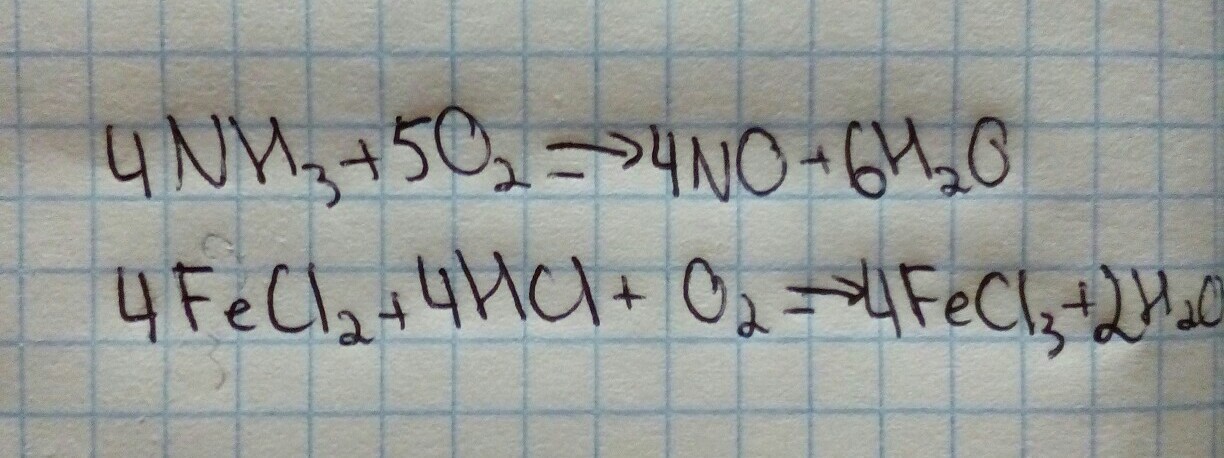 4NH₃+5O₂=→4NO+6H₂O
4FeCl₂+4HCl+ O₂=→4FeCl₃+2H₂O